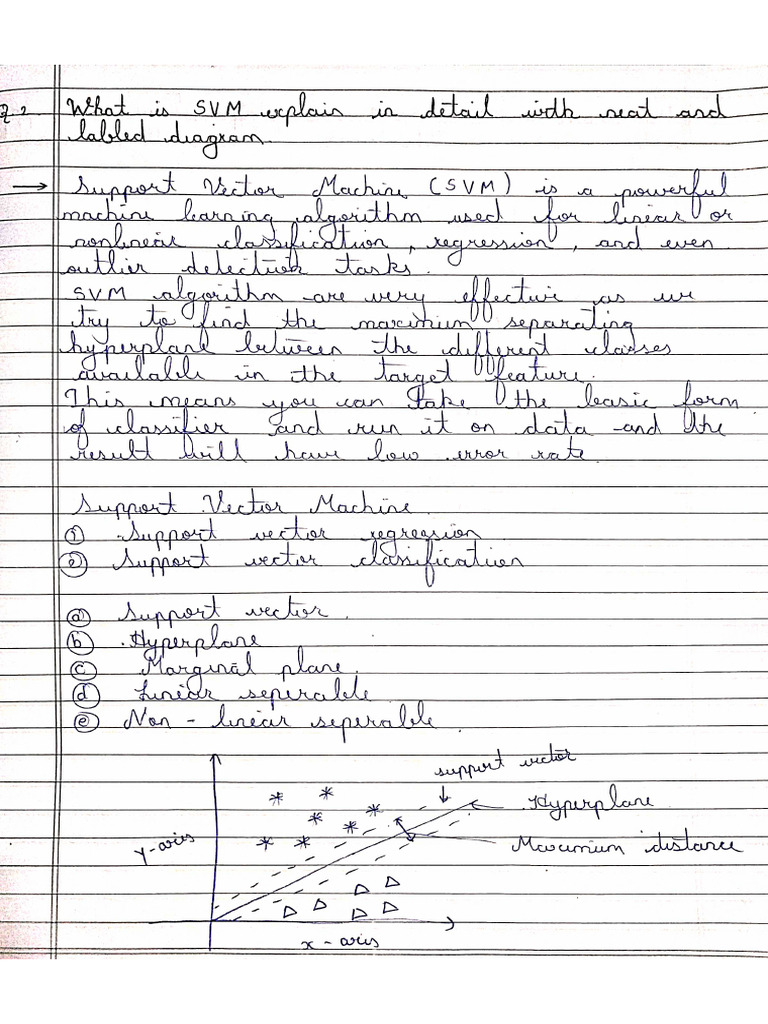 Q.2 What is SVM explain in detail with neat and
labled diagram.
→ Support Vector Machine (SVM) is a powerful
machine learning algorithm used for linear or
nonlinear classification, regression, and even
outlier detection tasks.
SVM algorithm are very effective as we
try to find the maximum separating
hyperplane between the different classes
available in the target feature.
This means you can take the basic form
of classifier and run it on data and the
result will have low error rate.
Support Vector Machine.
① Support vector regression
② Support vector classification
ⓐ Support vector.
ⓑ Hyperplane
ⓒ Marginal plane.
ⓓ Linear seperable
ⓔ Non - linear seperable.
support vector
Hyperplane
Maximum distance
y-axis
x-axis